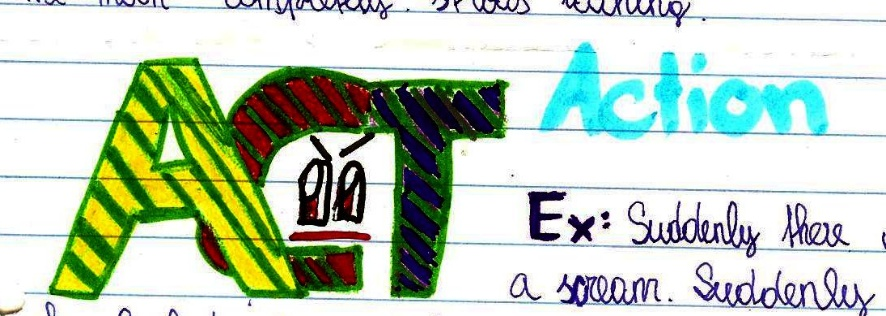 completely. shows
ACT Action
Ex: Suddenly there
a scream. Suddenly